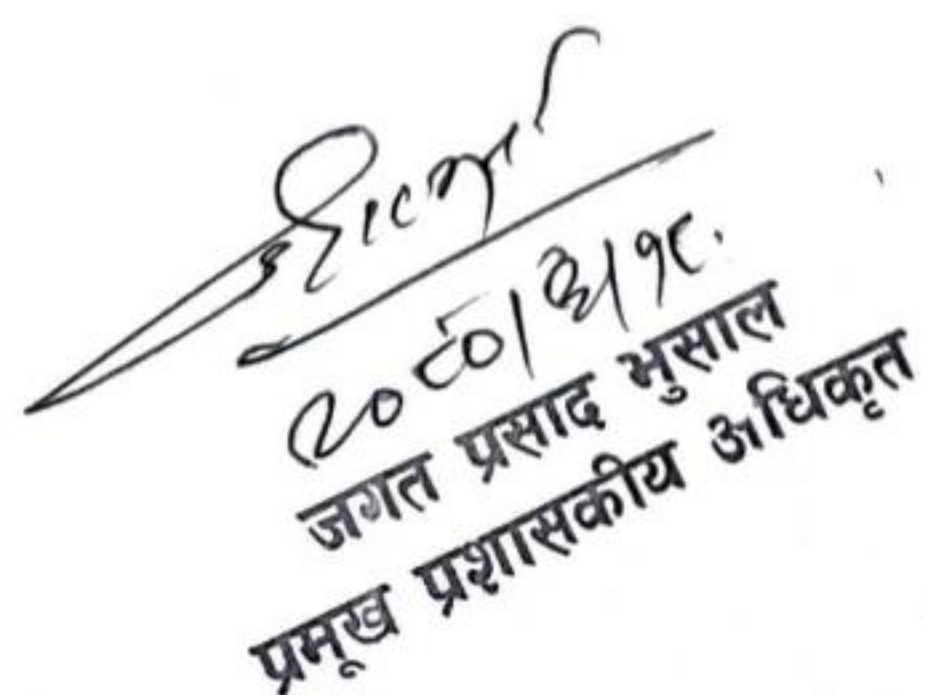 २०८०।३।१८.
जगत प्रसाद भुसाल
प्रमूख प्रशासकीय अधिकृत